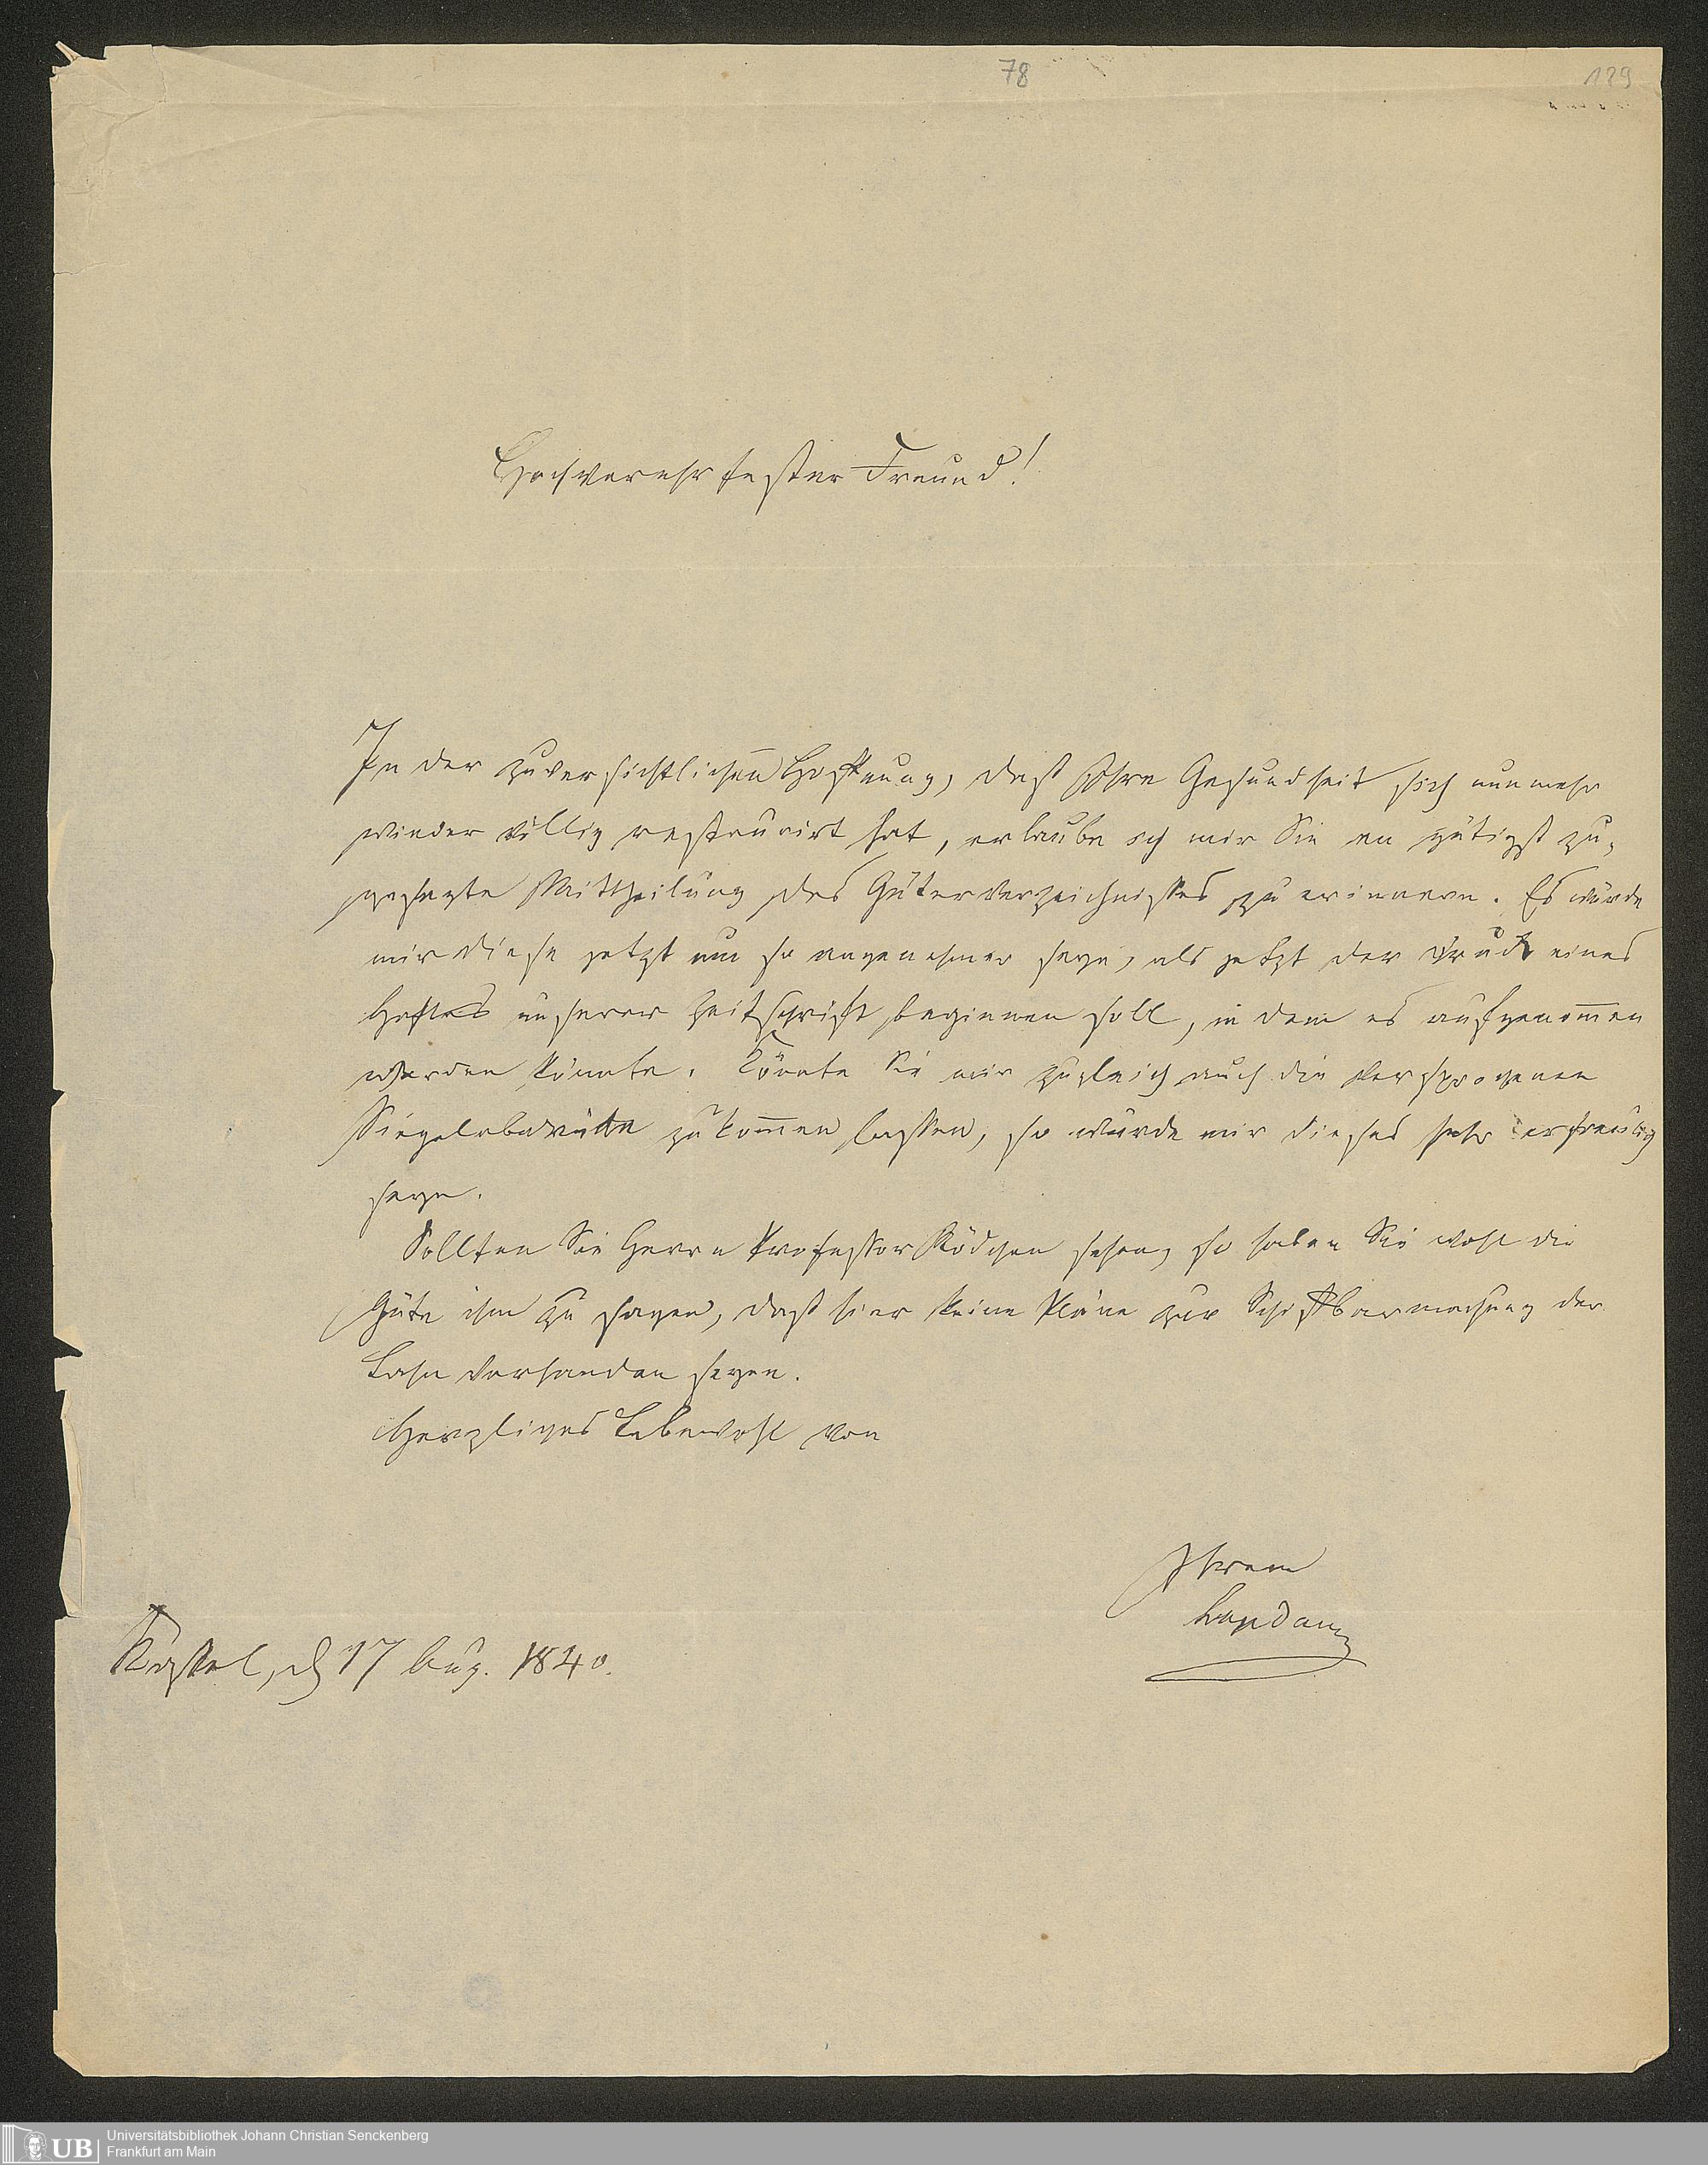 78
129
Hochverehrtester Freund!
In der zuversichtlichen Hoffnung, daß Ihre Gesundheit sich nunmehr
wieder völlig restaurirt hat, erlaube ich mir Sie an gütigst zu-
gesagte Mittheilung des Güterverzeichnisses zu erinnern. Es würde
mir diese jetzt um so angenehmer seyn, als jetzt der Druck eines
Heftes unserer Zeitschrift beginnen soll, in dem es aufgenom̅en
werden könnte. Könnte Sie mir zugleich auch die versprochenen
Siegelabdrücke zukom̅en lassen, so würde mir dieses sehr erfreulich
seyn.
Sollten Sie Herrn Professor sehen, so haben Sie wohl die
Güte ihm zu sagen, daß hier keine Pläne zur Schiffbarmachung der
Lahn vorhanden seyen.
Herzliches Lebewohl von
Ihrem
Landau
Kassel, d 17 Aug. 1840.
UB
Universitätsbibliothek Johann Christian Senckenberg
Frankfurt am Main